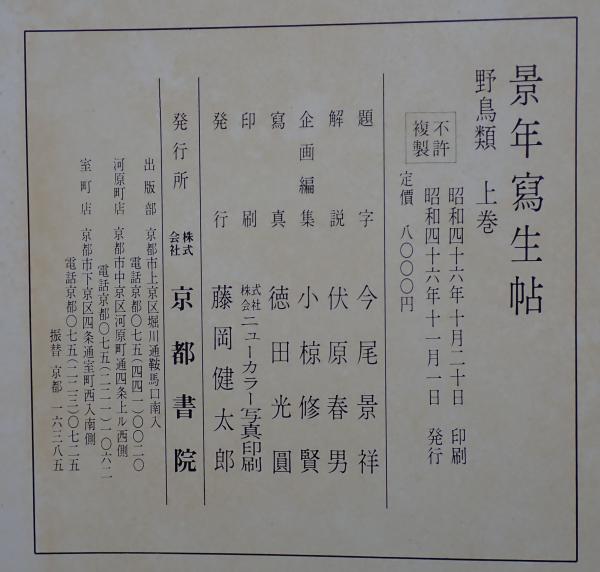 景年寫生帖
野鳥類 上巻
昭和四十六年十月二十日 印刷
昭和四十六年十一月一日 発行
不許
複製
定價 八〇〇〇円
題字 今尾景祥
解説 伏原春男
企画編集 小椋修賢
寫真 徳田光圓
印刷 株式会社ニューカラー写真印刷
発行 藤岡健太郎
発行所 株式会社 京都書院
出版部 京都市上京区堀川通鞍馬口南入
電話京都〇七五(四四一)〇〇二〇
河原町店 京都市中京区河原町通四条上ル西側
電話京都〇七五(二二一)一〇六二
室町店 京都市下京区四条通室町西入南側
電話京都〇七五(二二三)〇七二五
振替 京都 一六三八五